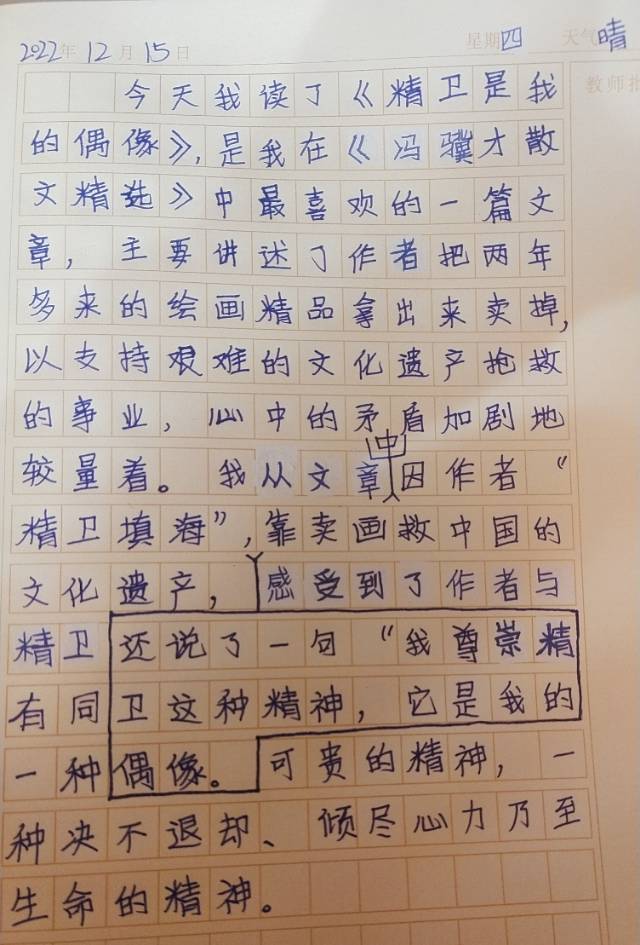 2022年 12月 15日 星期四 天气晴
教师批
今天我读了《精卫是我
的偶像》，是我在《冯骥才散
文精选》中最喜欢的一篇文
章，主要讲述了作者把两年
多来的绘画精品拿出来卖掉，
以支持艰难的文化遗产抢救
的事业，心中的矛盾加剧地
较量着。我从文章中因作者“
精卫填海”，靠卖画救中国的
文化遗产，感受到了作者与
精卫还说了一句“我尊崇精
有同卫这种精神，它是我的
一种偶像。可贵的精神，一
种决不退却、倾尽心力乃至
生命的精神。